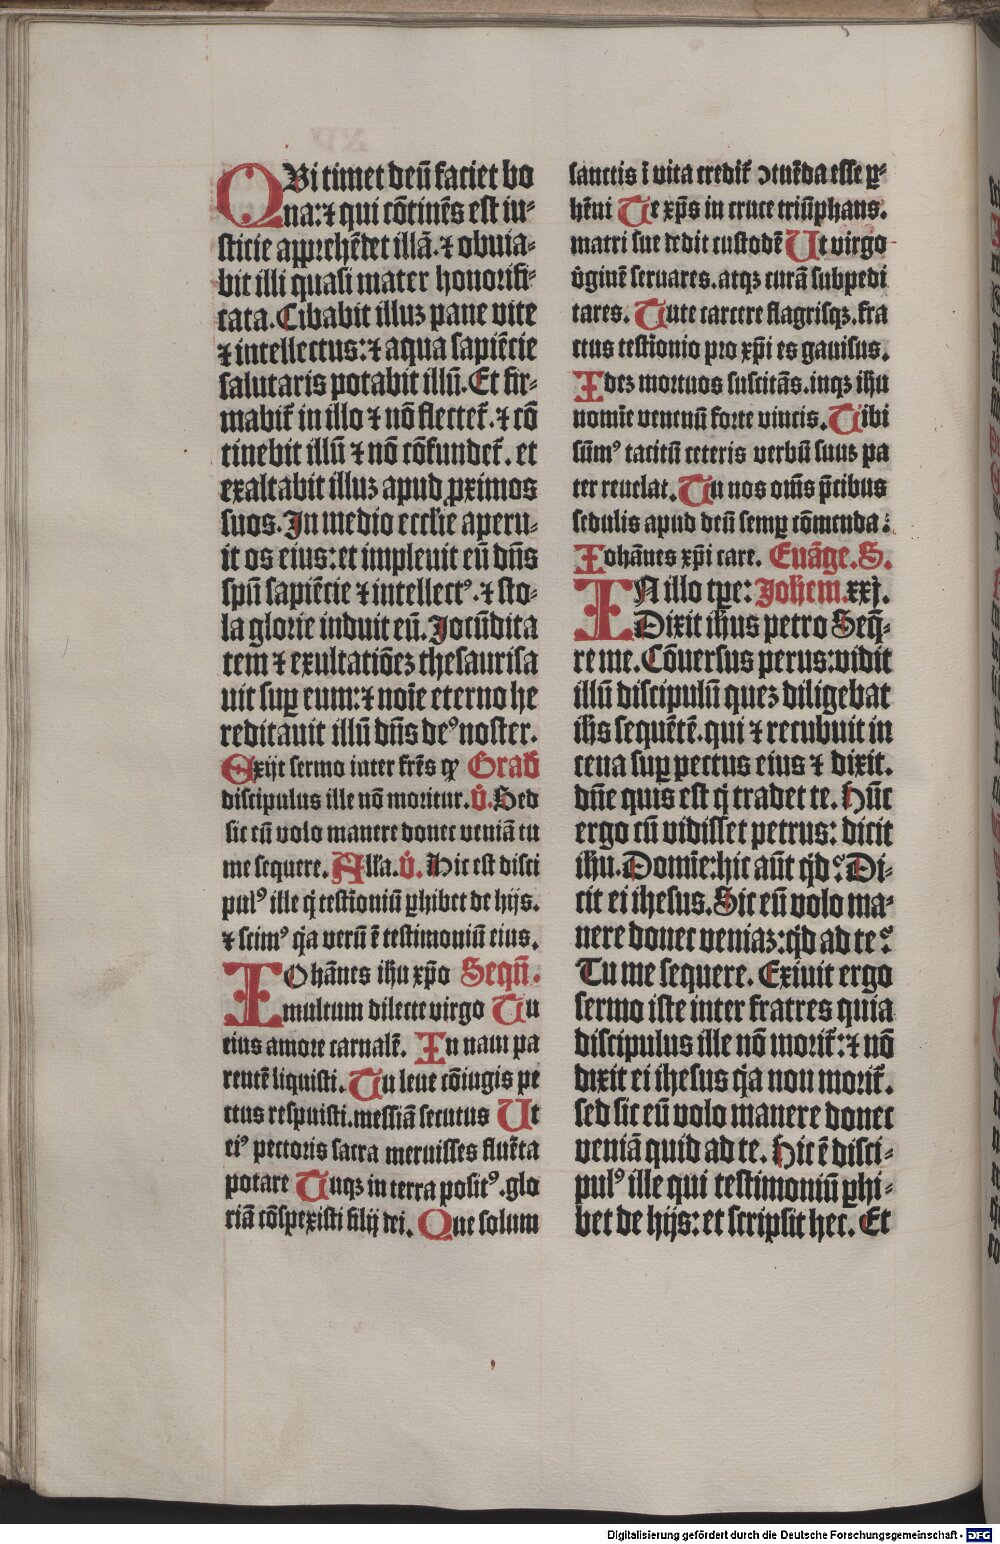 QVi timet deū faciet bo
na: ⁊ qui cōtinēs est iu⸗
sticie apprehēdet illā. ⁊ obuia⸗
bit illi quasi mater honorifi⸗
cata. Cibabit illuz pane vite
⁊ intellectus: ⁊ aqua sapiēcie
salutaris potabit illū. Et fir⸗
mabit᷑ in illo ⁊ nō flectet᷑. ⁊ cō
tinebit illū ⁊ nō cōfundet᷑. et
exaltabit illuz apud ꝓximos
suos. In medio ecclie aperu⸗
it os eius: et impleuit eū dn̄s
spū sapiēcie ⁊ intellectꝰ. ⁊ sto⸗
la glorie induit eū. Jocūdita
tem ⁊ exultatiōez thesaurisa
uit suꝑ eum: ⁊ noīe eterno he
reditauit illū dn̄s deꝰ noster.
Exijt sermo inter fr̄es ꝙ Grad̄
discipulus ille nō moritur. v̊. Sed
sic eū volo manere donec veniā tu
me sequere. Alla. v̊. Hic est disci
pulꝰ ille q̄ testīoniū ꝑhibet de hijs.
⁊ scimꝰ q̄a verū ē testimoniū eius.
IOhānes ihu xp̄o Sequn̄.
multum dilecte virgo Tu
eius amore carnalē. In nam pa
rentē liquisti. Tu leue cōiugis pe
ctus respuisti. messiā secutus Ut
eiꝰ pectoris sacra meruisses fluēta
potare Tuqz in terra positꝰ. glo
riā cōspexisti filij dei. Que solum
sanctis ī vita credit᷑ ꝯtuēda esse ꝑ⸗
hēni Te xp̄s in cruce triūphans.
matri sue dedit custodē Ut virgo
v̓ginē seruares. atqz curā subpedi
tares. Tute carcere flagrisqz. fra
ctus testīonio pro xp̄i es gauisus.
Idez mortuos suscitās. inqz ihu
nomīe venenū forte vincis. Tibi
sūmꝰ tacitū ceteris verbū suuz pa
ter reuelat. Tu nos om̄s p̄cibus
sedulis apud deū semꝑ cōmenda:
Iohānes xp̄i care. Euāge. S.
IN illo tꝑe: Johem. xxj.
Dixit ihūs petro Seq̄⸗
re me. Cōuersus perus: vidit
illū discipulū quez diligebat
ihs sequētē. qui ⁊ recubuit in
cena suꝑ pectus eius ⁊ dixit.
dn̄e quis est q̄ tradet te. Hūc
ergo cū vidisset petrus: dicit
ihu. Domīe: hic aūt q̄d? Di⸗
cit ei ihesus. Sic eū volo ma⸗
nere donec veniaz: q̄d ad te?
Tu me sequere. Exiuit ergo
sermo iste inter fratres quia
discipulus ille nō morit᷑: ⁊ nō
dixit ei ihesus q̄a non morit᷑.
sed sic eū volo manere donec
veniā quid ad te. Hic ē disci⸗
pulꝰ ille qui testimoniū ꝑhi⸗
bet de hijs: et scripsit hec. Et
Digitalisierung gefördert durch die Deutsche Forschungsgemeinschaft - DFG